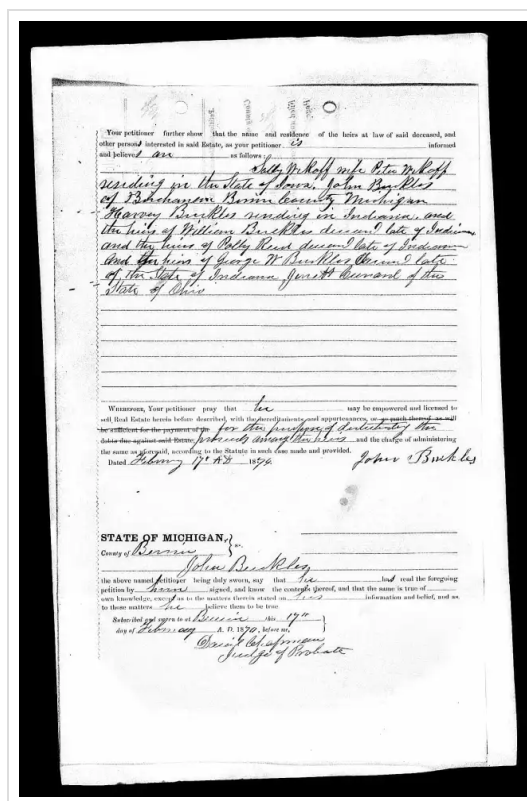 Your petitioner further show that the name and residence of the heirs at law of said deceased, and
other persons interested in said Estate, as your petitioner is informed
and believes are as follows:
Sally Wikoff wife Peter Wikoff
residing in the State of Iowa. John Buckles
of Buchanan Berrien County Michigan
Harvey Buckles residing in Indiana and
the heirs of William Buckles deceased late of Indiana
and the heirs of Polly Reed deceased late of Indiana
and the heirs of George W Buckles late
of the State of Indiana, of the
State of Ohio
WHEREFORE, Your petitioner pray that he may be empowered and licensed to
sell Real Estate herein before described, with the hereditaments and appurtenances, or so much thereof as will
be sufficient for the payment of the for the purpose of distributing the
debts due against said Estate, proceeds among the heirs and the charge of administering
the same as aforesaid, according to the Statute in such case made and provided.
Dated February 17th AD 1870. John Buckles
STATE OF MICHIGAN,
County of Berrien ss.
John Buckles
the above named petitioner being duly sworn, say that he had read the foregoing
petition by him signed, and know the contents thereof, and that the same is true of
own knowledge, except as to the matters therein stated on his information and belief, and as
to those matters he believe them to be true
Subscribed and sworn to at Berrien this 17th
day of February A. D. 1870, before me,
Chapman
Judge of Probate